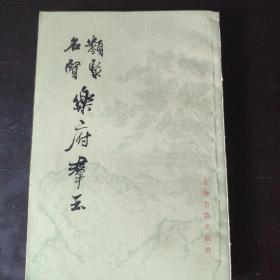 類聚
名賢
樂府羣玉
上海古籍出版社